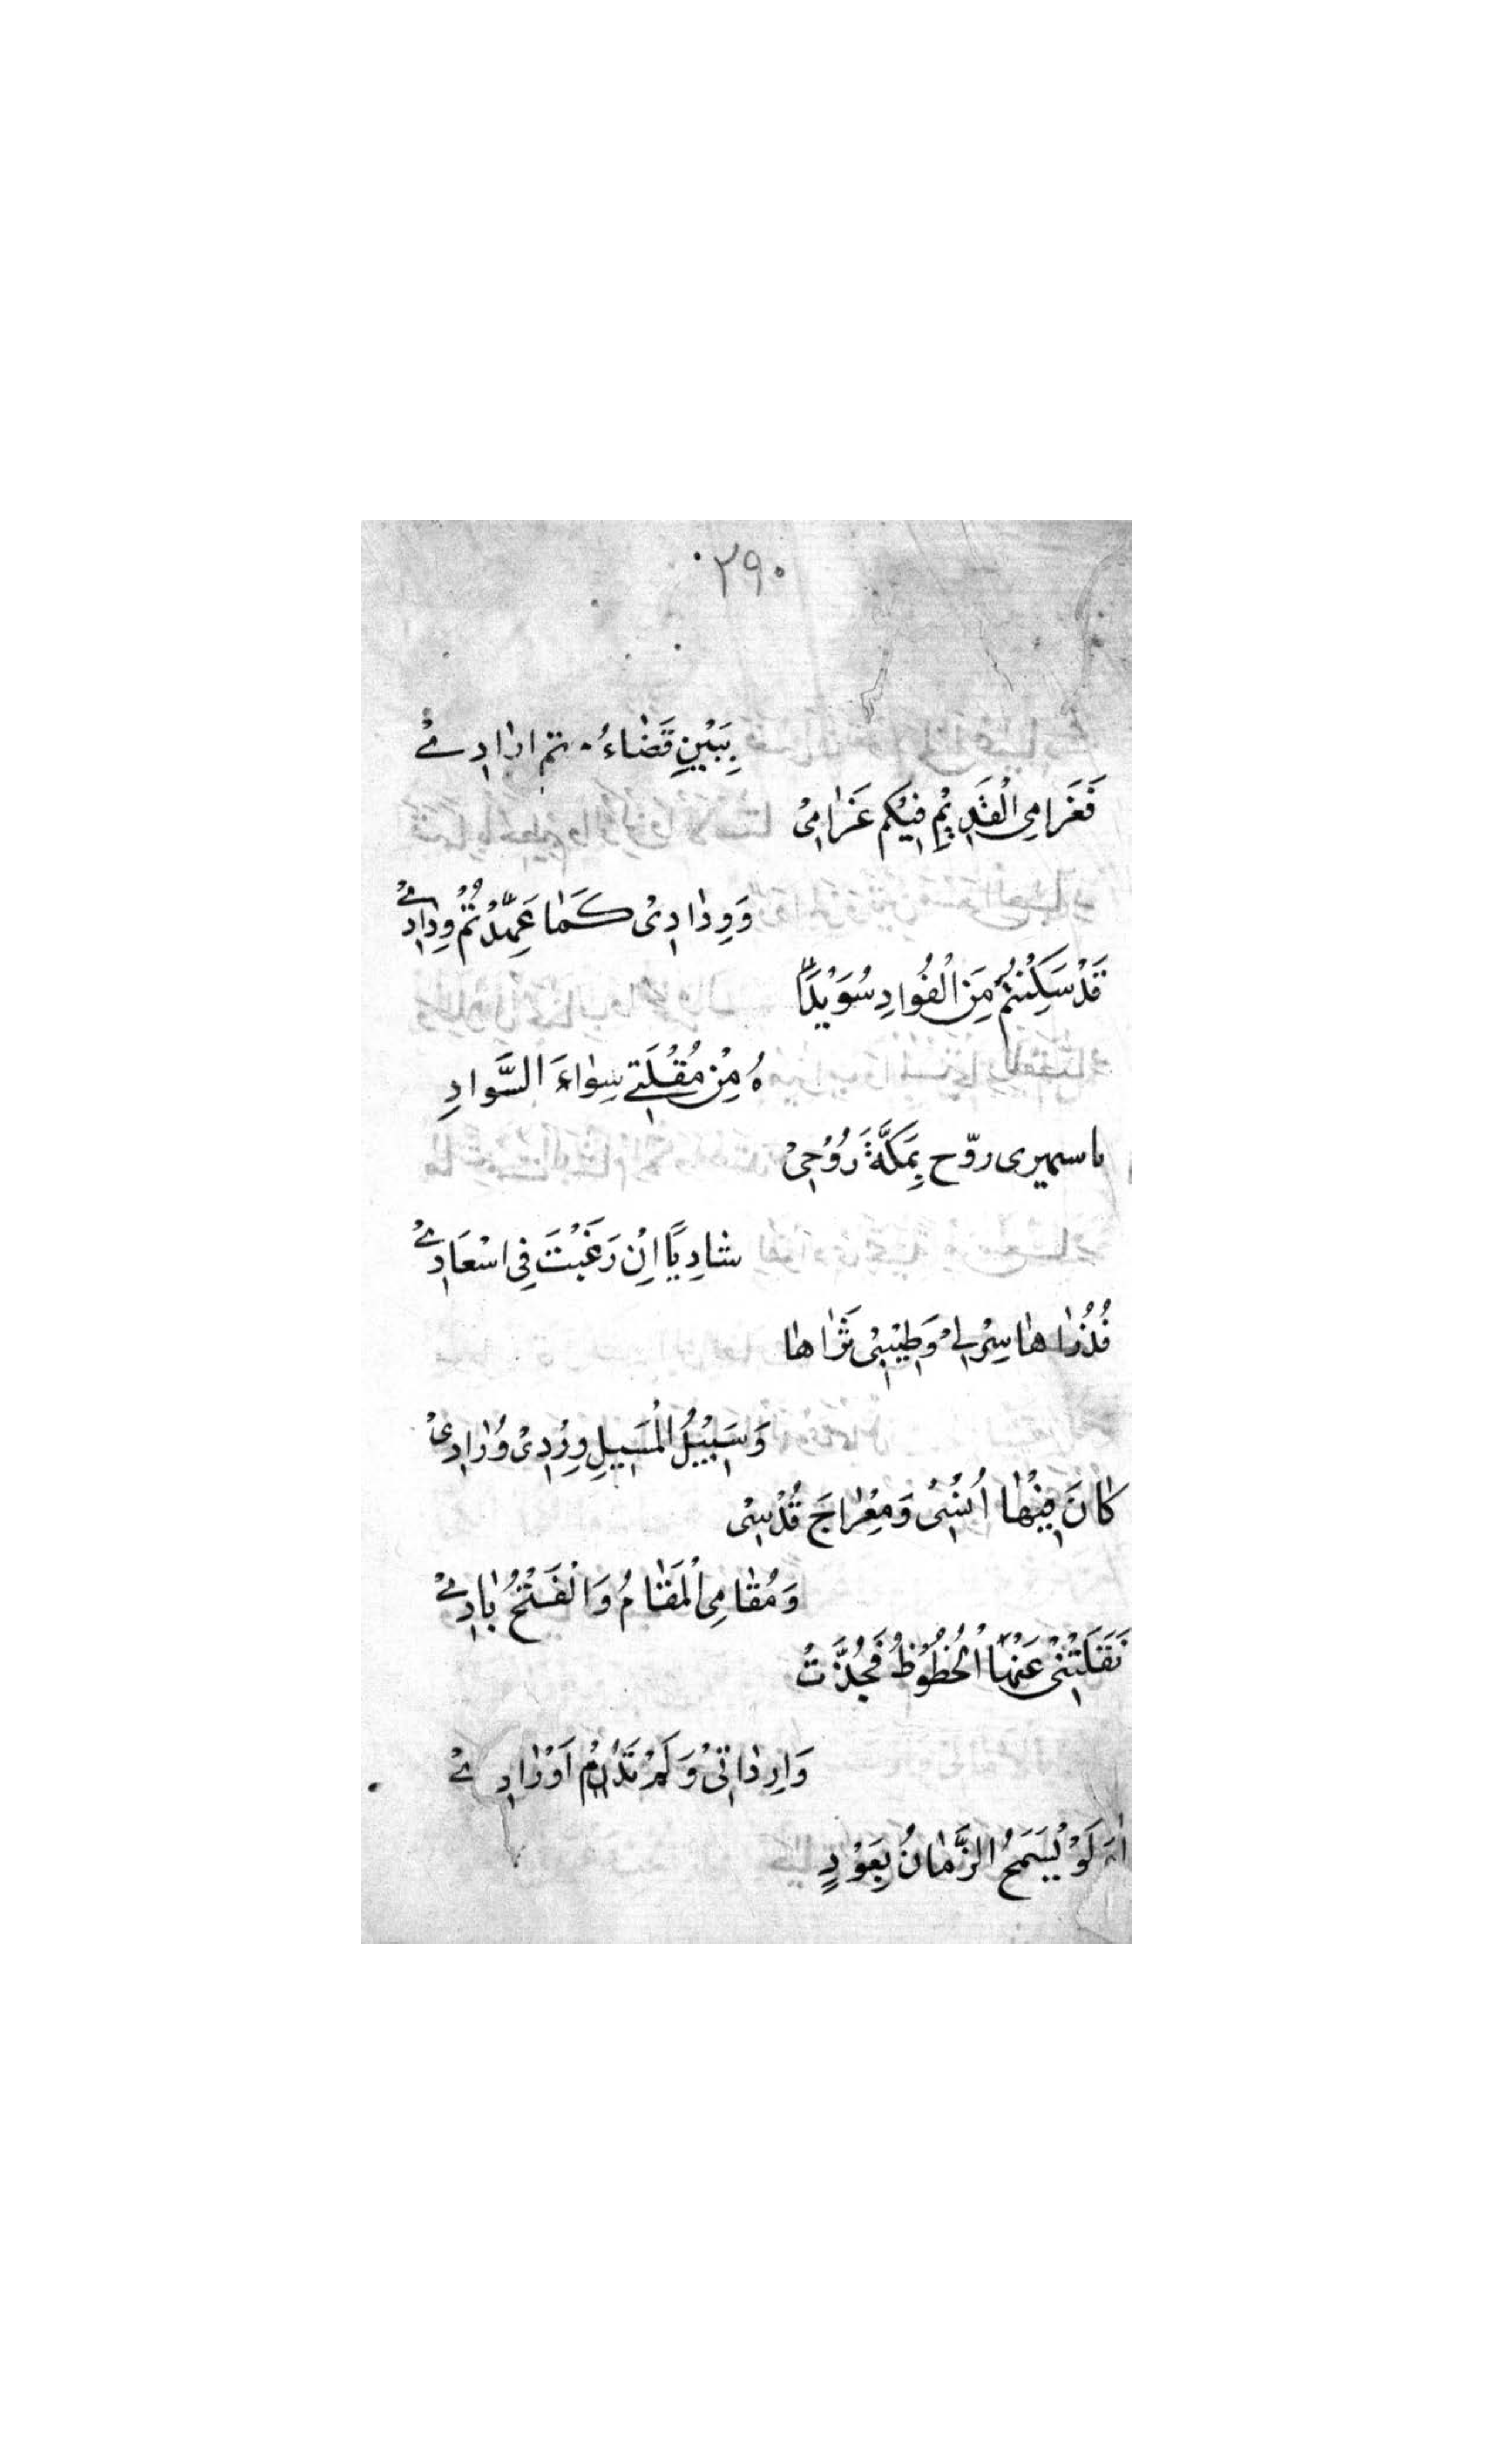 ٠٢٩٠
بِبَيْنِ قَضٰاءُ تم ارٰادِيْ
فَغَرٰامِی الْقَدِيْمِ فِيْكُم غَرٰامِیْ
وَوِدٰادِیْ كَمٰا عَهِدْتُمْ وِدٰادِيْ
قَدْ سَكَنْتُمْ مِنَ الْفُوادِ سُوَيْدٰا
هُ مِنْ مُقْلَتِي سِوٰاءَ السَّوادِ
يا سميری روّح بِمَكَّةَ رُوْحِیْ
شادِيًا اِنْ رَغَبْتَ فِی اسْعَادِيْ
فَذُرٰاهٰا سِرْبِيْ وَطِيْبِیْ ثَرٰاهٰا
وَسَبِيْلُ الْمَسِيلِ وِرْدِیْ وَزٰادِیْ
كٰانَ فِيْهٰا اُنْسِیْ وَمِعْرٰاجَ قُدْسِیْ
وَمُقٰامِی الْمَقٰامُ وَالْفَتْحُ بٰادِيْ
نَقَلَتْنِیْ عَنْهَا الْحُظُوْظُ فَجُذَّتْ
وَارِدٰاتِیْ وَلَمْ تَدُمْ اَوْرٰادِيْ
اٰهَ لَوْ يَسْمَحُ الزَّمٰانُ بِعَوْدٍ